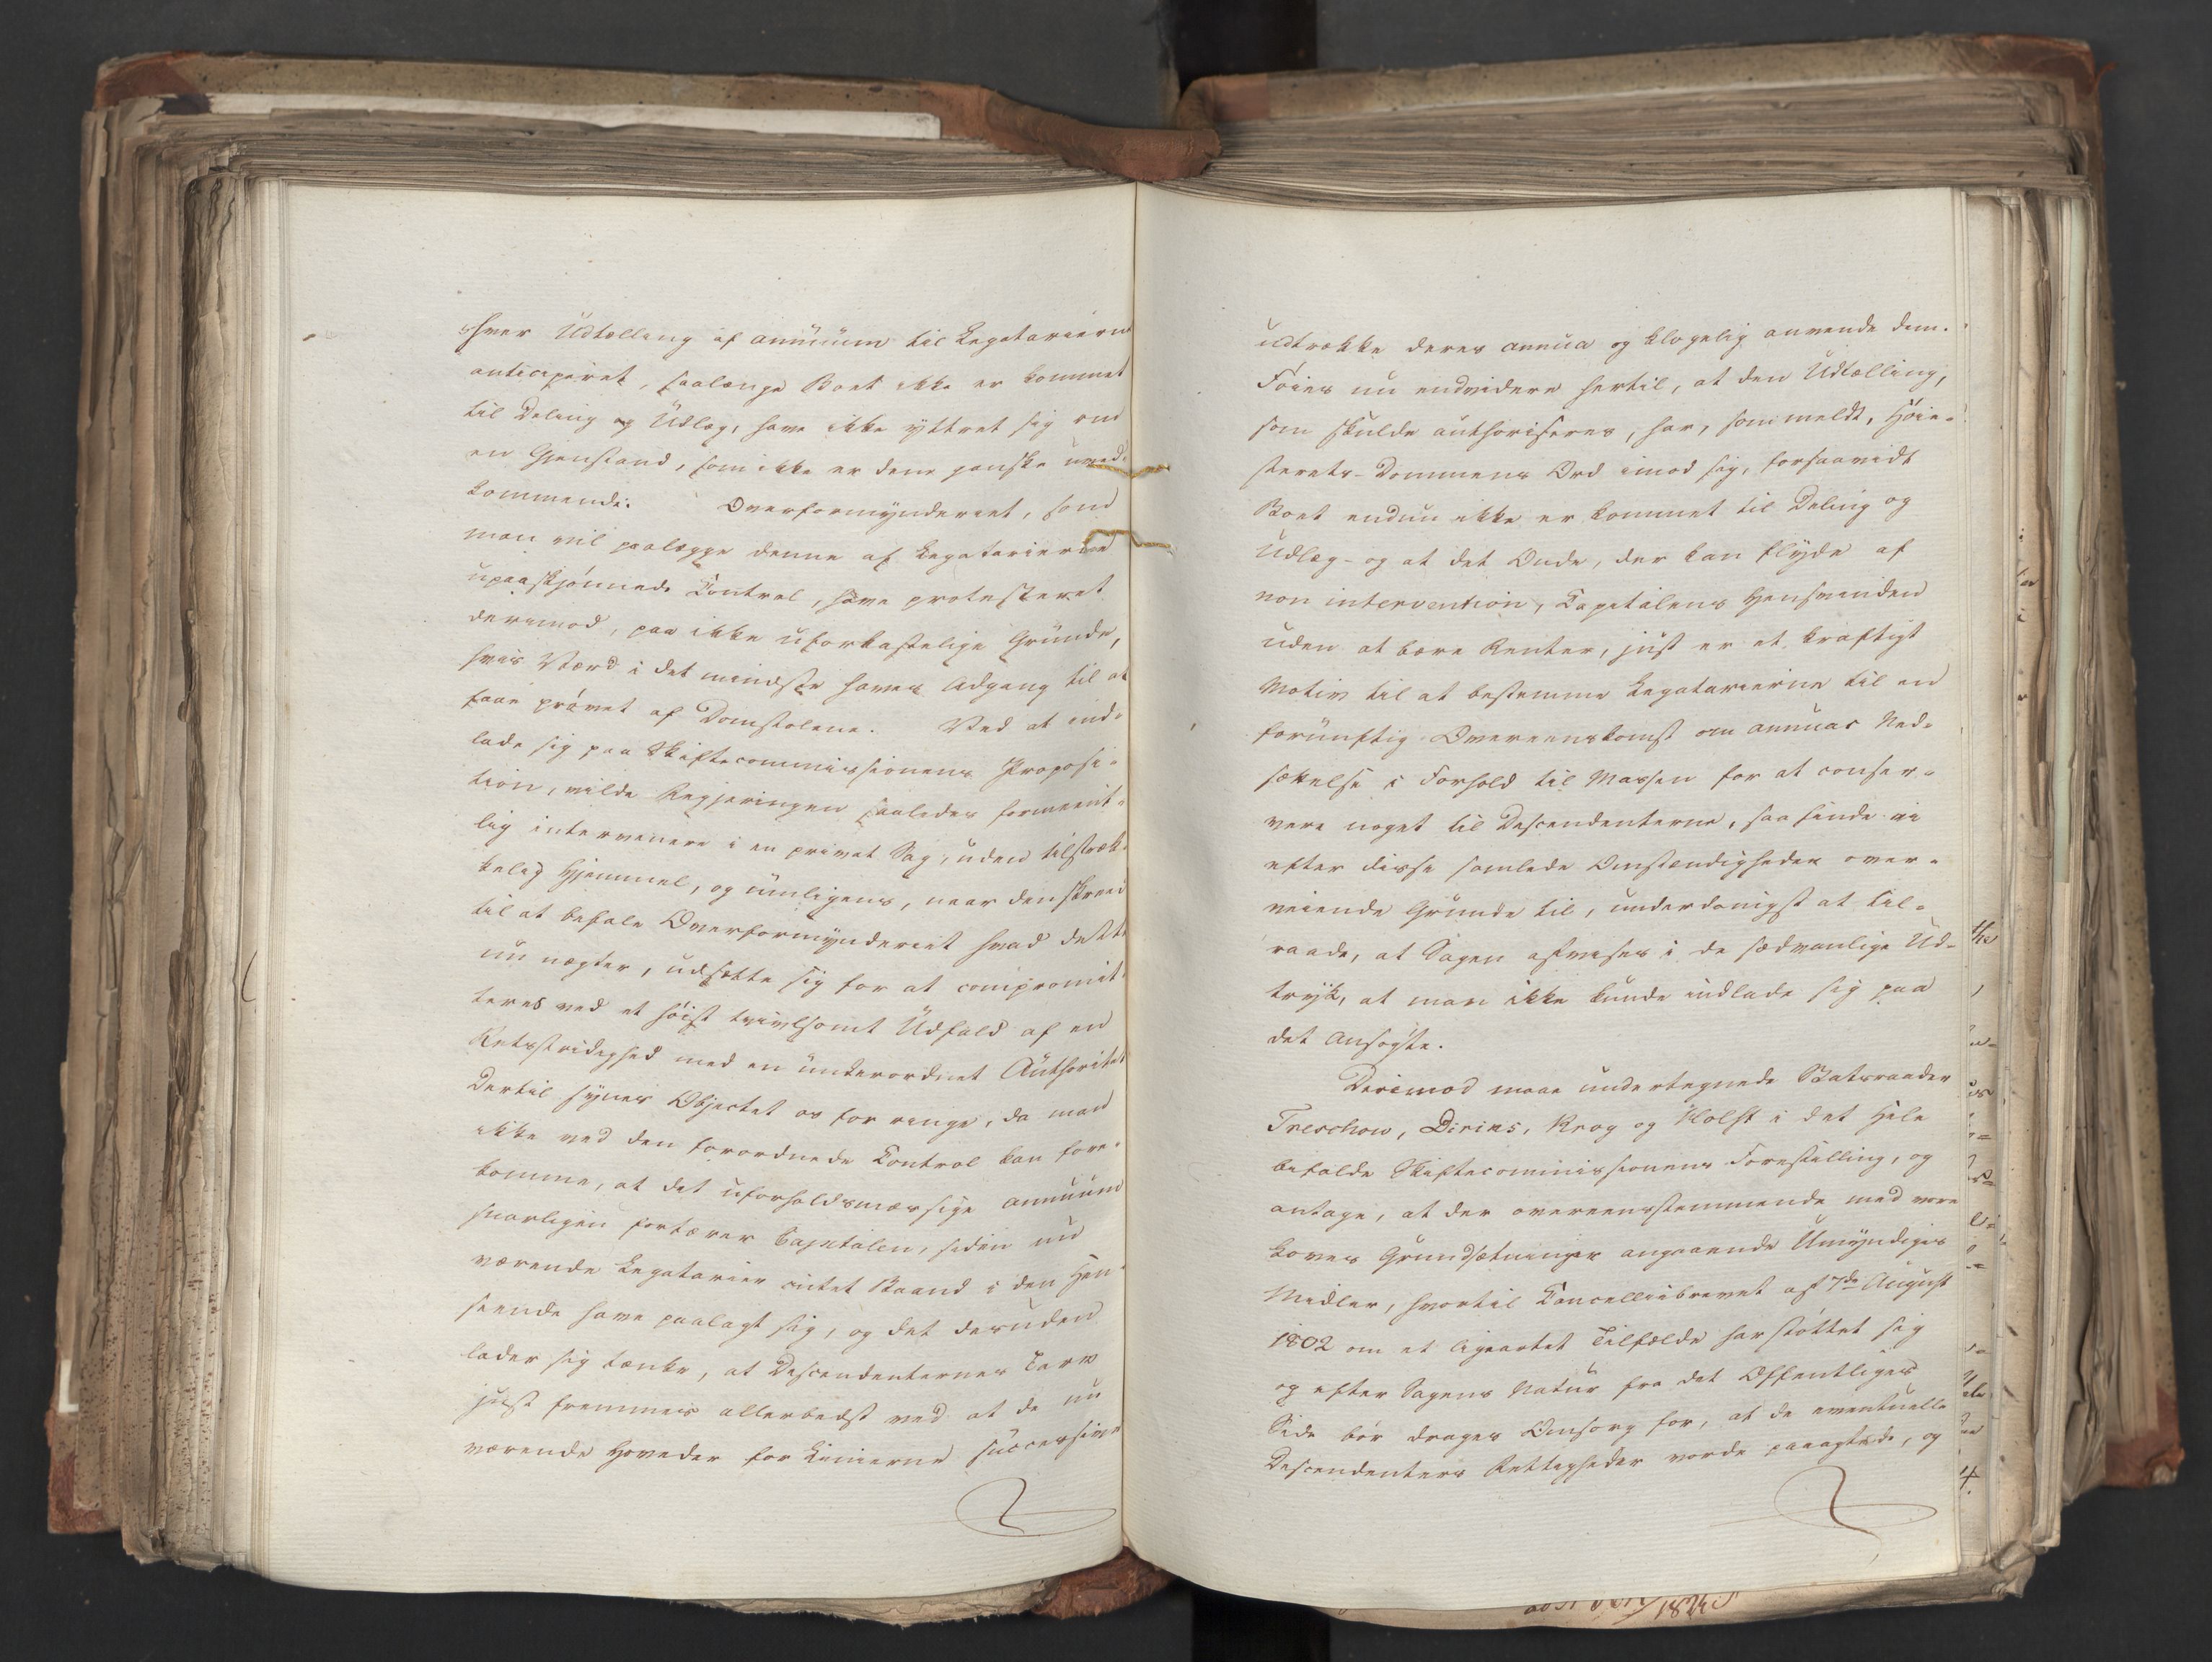 hver Udtælling af annuum til Legatarierne
anticiperet, saalænge Boet ikke er kommet
til Deling og Udlæg, have ikke yttret sig om
en Gjenstand, som ikke er dem ganske uved-
kommende. Overformynderiet, som
man vil paalægge denne af Legatarierne
upaaskjønnede Control, have protesteret
derimod, paa ikke uforkastelige Grunde,
hvis Værd i det mindste haves Adgang til at
faae prøvet af Domstolene. Ved at ind-
lade sig paa Skiftecommissionens Proposi-
tion, vilde Regjeringen saaledes formeent-
lig intervenere i en privat Sag, uden tilstræk-
kelig Hjemmel, og umligens, naar den skreed
til at befale Overformynderiet hvad dette
nu nægter, udsætte sig for at compromit-
teres ved et høist tvivlsomt Udfald af en
Retsstridighed med en underordnet Authoritet
Dertil synes Objectet os for ringe, da man
ikke ved den forordnede Control kan fore-
komme, at det uforholdsmæssige annuum
snarligen fortærer Capitalen, siden nu
værende Legatarier intet Baand i den Hen-
seende have paalagt sig, og det desuden
lader sig tænke, at Descendenternes Tarv
just fremmes allerbedst ved at de nu
værende Hoveder for Linierne successive
udtrække deres annua og klogelig anvende dem.
Føies nu endvidere hertil, at den Udtælling,
som skulde authoriseres, har, som meldt, Høie-
sterets-Dommens Ord imod sig, forsaavidt
Boet endnu ikke er kommet til Deling og
Udlæg - og at det Onde, der kan flyde af
non intervention, Capitalens Hensvinden
uden at bære Renter, just er et kraftigt
Motiv til at bestemme Legatarierne til en
fornuftig Overeenskomst om annuas Ned-
sættelse i Forhold til Massen for at conser-
vere noget til Descendenterne, saa finde vi
efter disse samlede Omstændigheder over-
veiende Grunde til, underdanigst at til-
raade, at Sagen afvises i de sædvanlige Ud-
tryk, at man ikke kunde indlade sig paa
det Ansøgte.
Derimod maae undertegnede Statsraader
Treschow, Diriks, Krog og Holst i det Hele
bifalde Skiftecommissionens Forestilling, og
antage, at der overeensstemmende med vore
Loves Grundsætninger angaaende Umyndiges
Midler, hvortil Cancelliibrevet af 7de August
1802 om et ligeartet Tilfælde har støttet sig
og efter Sagens Natur fra det Offentliges
Side bør drages Omsorg for, at de eventuelle
Descendenters Rettigheder vorde paaagtede, og